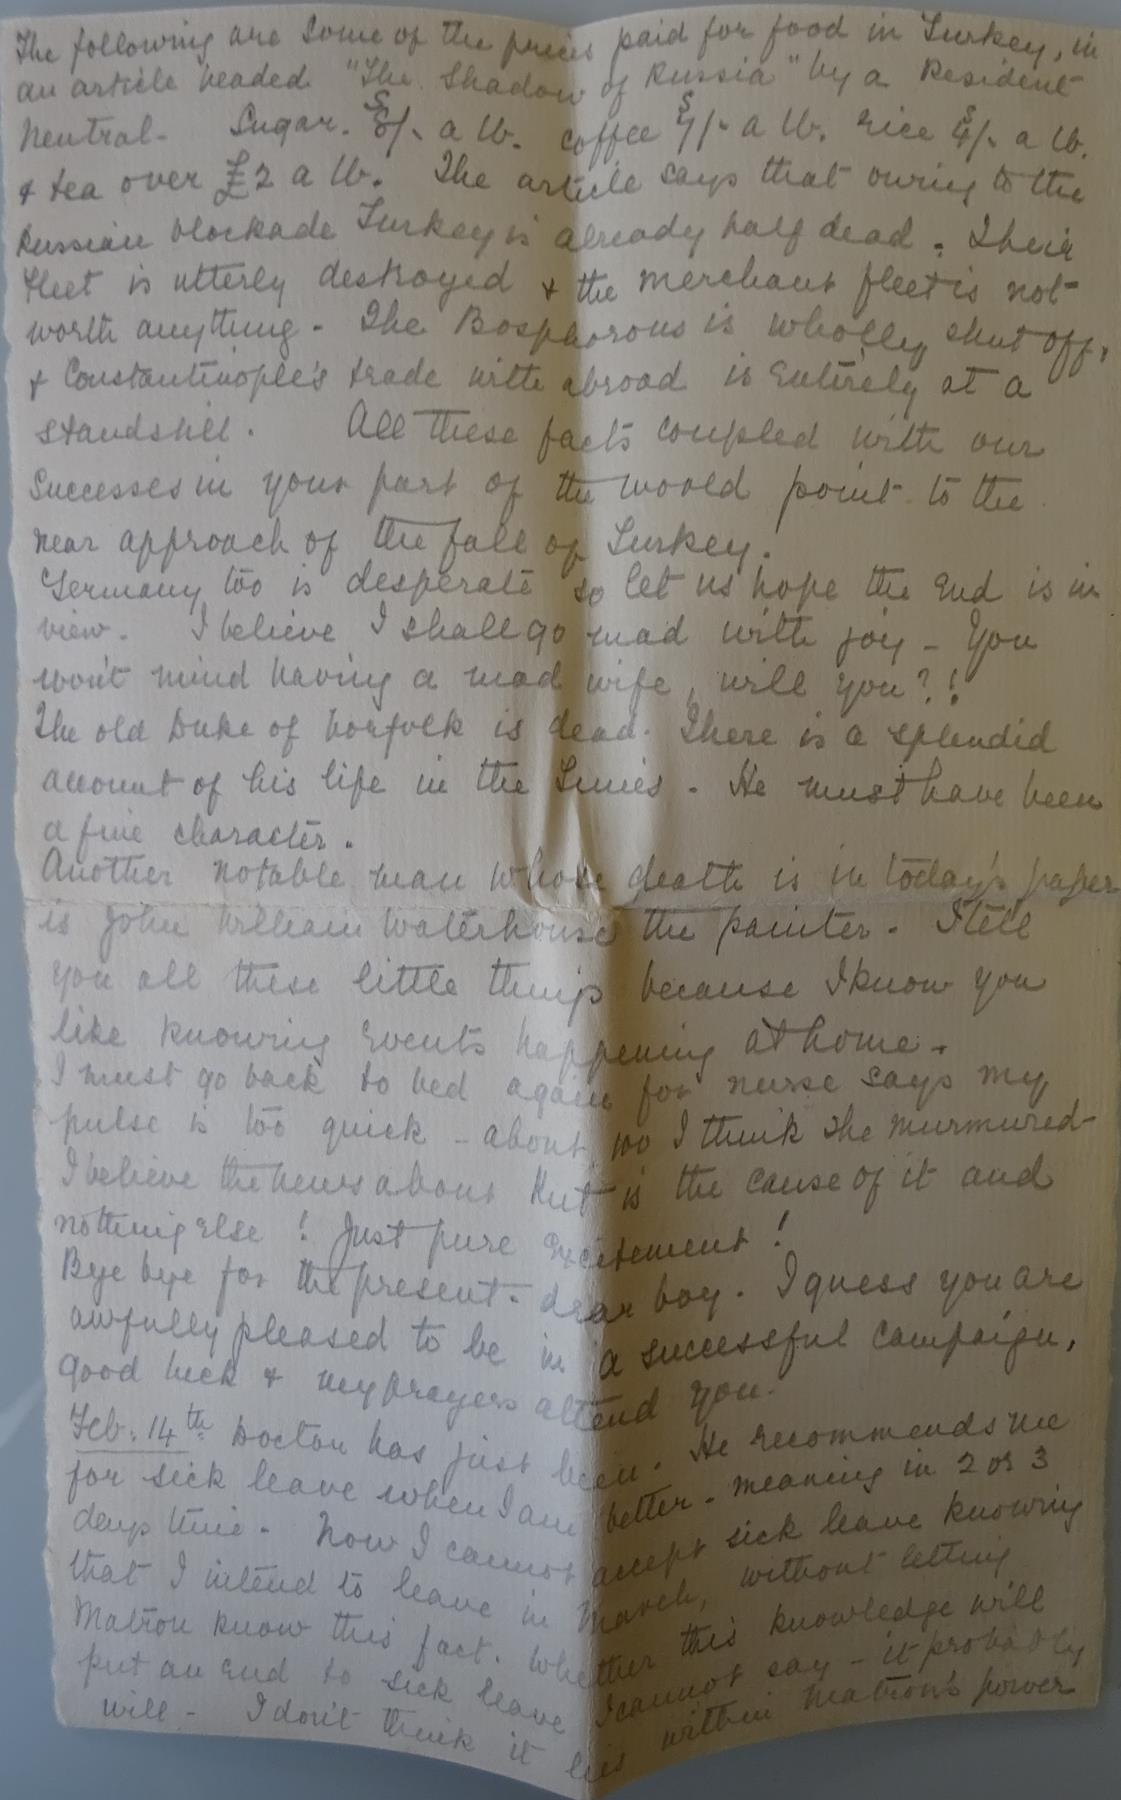 The following are some of the prices paid for food in Turkey, in
an article headed "The Shadow of Russia" by a Resident
Neutral - Sugar. 8/- a lb. coffee 7/- a lb. rice 4/- a lb.
& tea over £2 a lb. The article says that owing to the
Russian blockade Turkey is already half dead. Their
fleet is utterly destroyed & the merchant fleet is not
worth anything - The Bosphorous is wholly shut off,
& Constantinople's trade with abroad is entirely at a
standstill. All these facts coupled with our
successes in your part of the world point to the
near approach of the fall of Turkey.
Germany too is desperate so let us hope the end is in
view. I believe I shall go mad with joy - You
won't mind having a mad wife, will you?!
The old Duke of Norfolk is dead. There is a splendid
account of his life in the Times - He must have been
a fine character.
Another notable man whose death is in today's paper
is John William Waterhouse the painter. I tell
you all these little things because I know you
like knowing events happening at home.
I must go back to bed again for nurse says my
pulse is too quick - about 100 I think she murmured -
I believe the news about Kut is the cause of it and
nothing else! Just pure excitement!
Bye bye for the present - dear boy. I guess you are
awfully pleased to be in a successful campaign,
good luck & my prayers attend you.
Feb. 14th. Doctor has just been. He recommends me
for sick leave when I am better - meaning in 2 or 3
days time - Now I cannot accept sick leave knowing
that I intend to leave in March, without letting
Matron know this fact. Whether this knowledge will
put an end to sick leave I cannot say - it probably
will - I don't think it lies within Matron's power